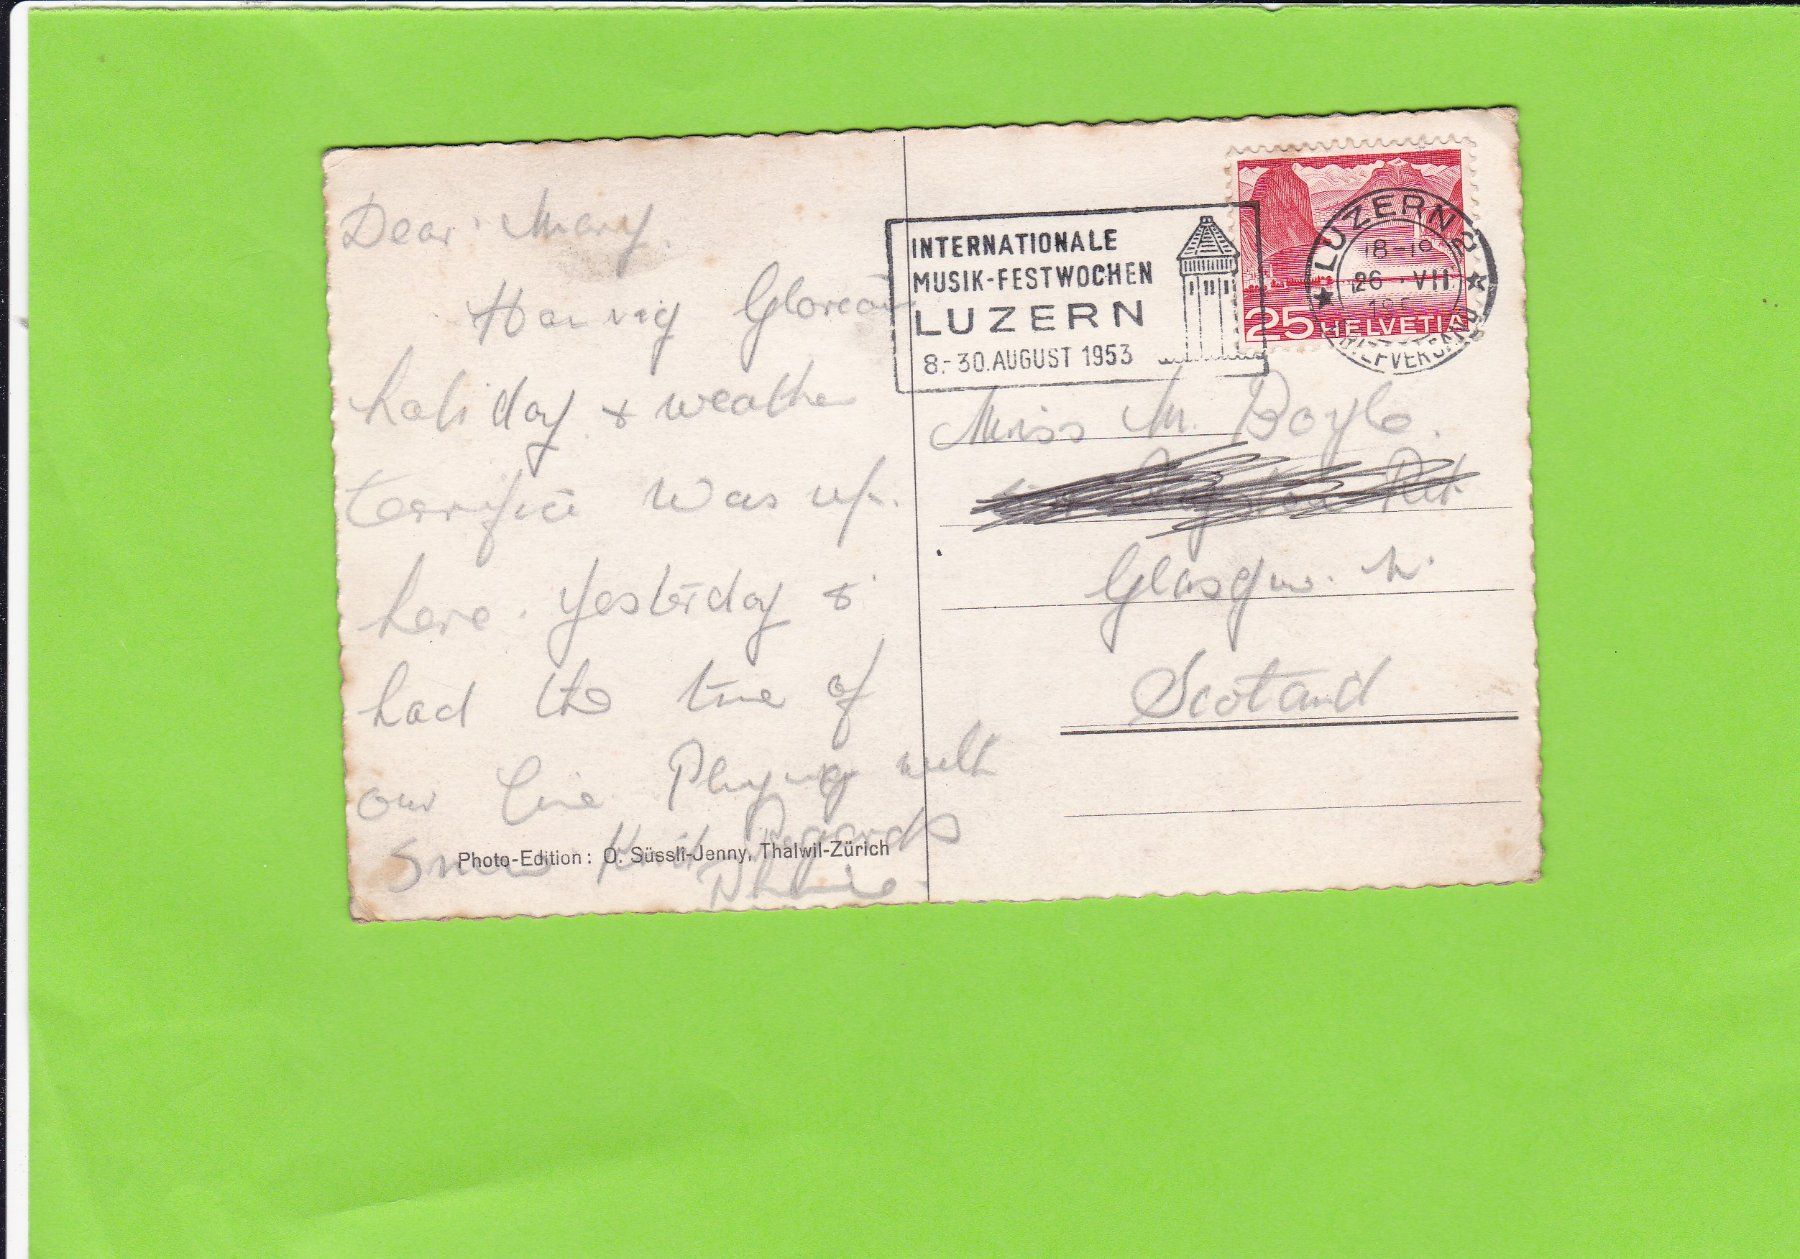 Dear Mary.
Having Glorious
holiday & weather
terrific was up.
here. yesterday &
had the time of
our live Playing with
Snow Kind Regards
Photo-Edition: O. Süssli-Jenny, Thalwil-Zürich
INTERNATIONALE
MUSIK-FESTWOCHEN
LUZERN
8.-30. AUGUST 1953
LUZERN 2
18-19
26. VII
BRIEFVERSAND
25 HELVETIA
Miss M. Boyle.
Glasgow. N.
Scotland